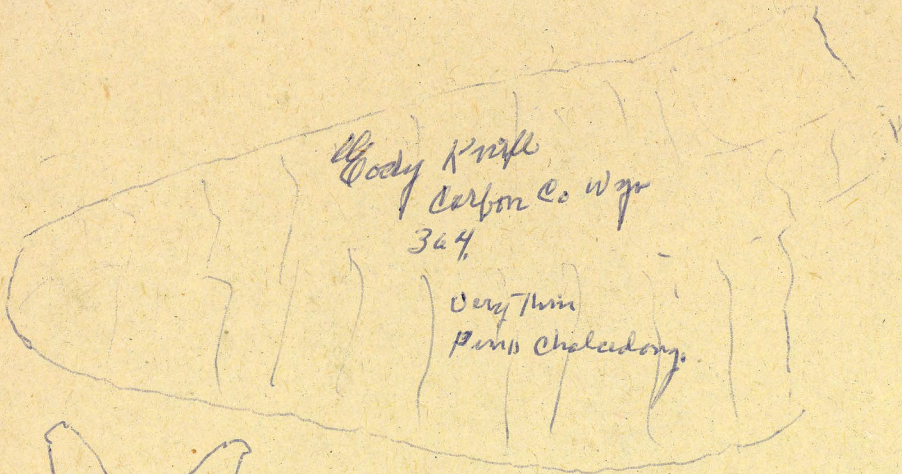 Cody Knife
Carbon Co Wyo
3 a 4.
Very Thin
Chalcedony.